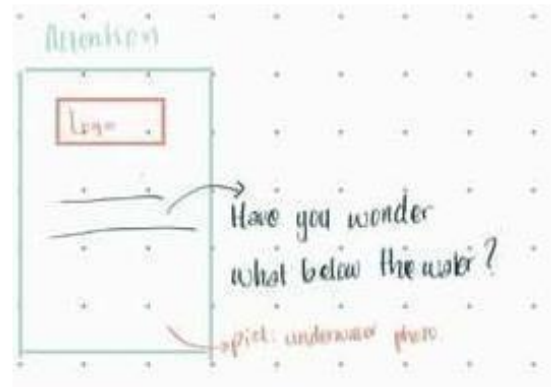 Attention
Logo
Have you wonder
what below the water?
pict: underwater photo.